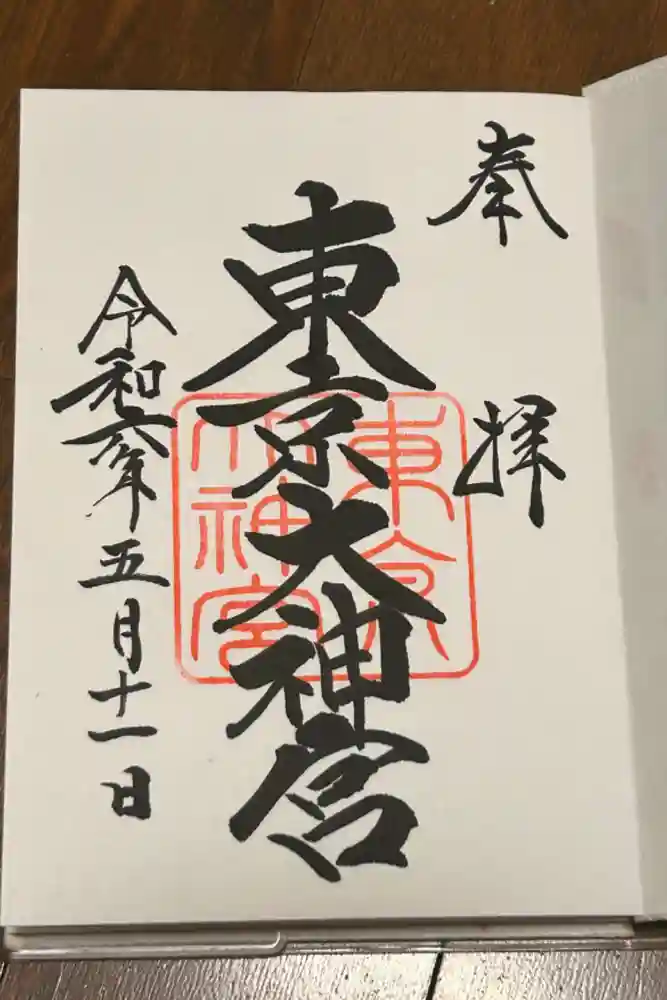 奉拝
東京大神宮
東京
大神宮
令和六年五月十一日